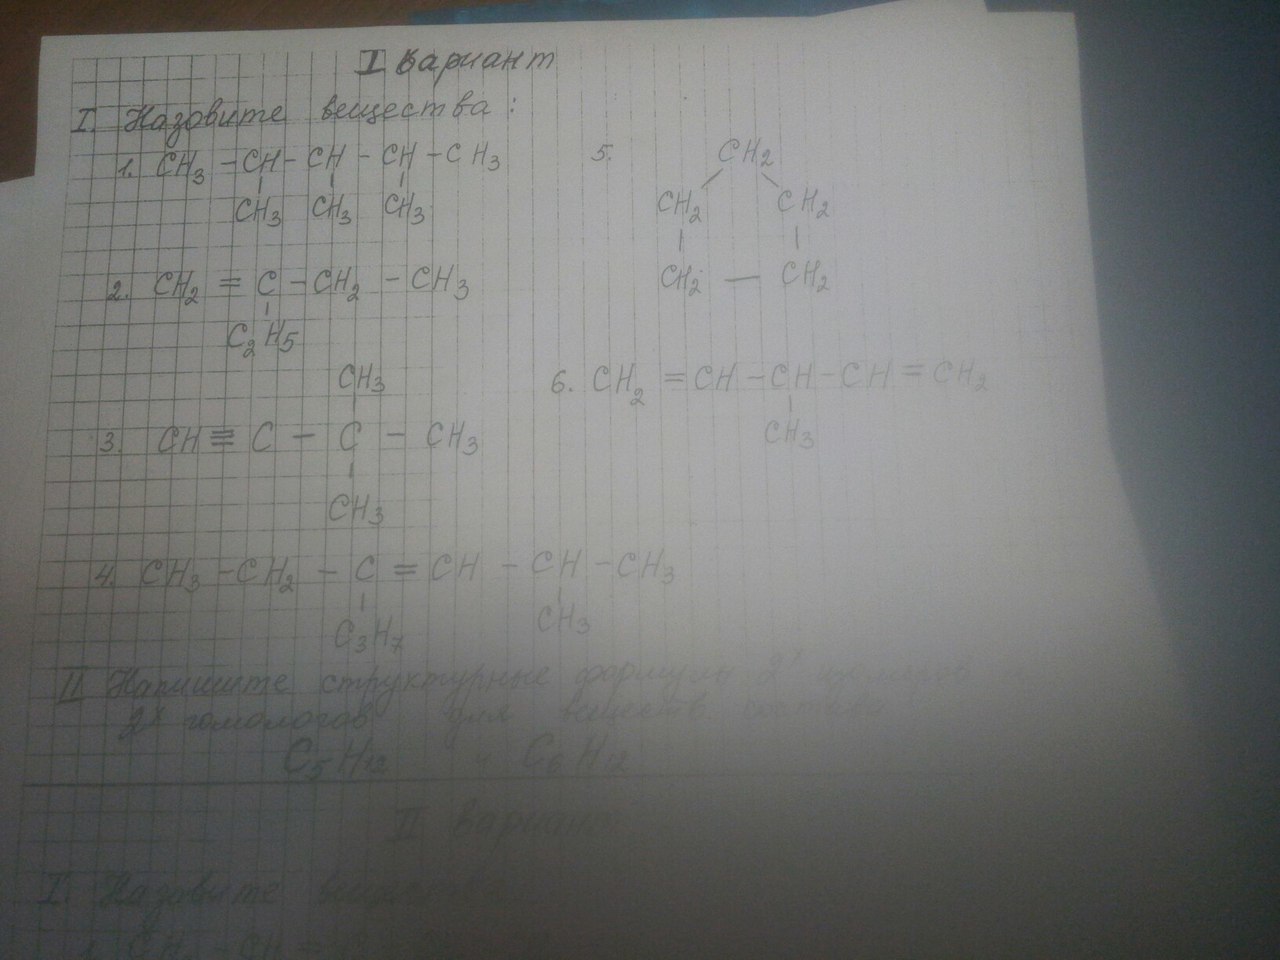 I вариант
I. Назовите вещества:
1. CH3 - CH - CH - CH - CH3
CH3 CH3 CH3
2. CH2 = C - CH2 - CH3
C2H5
CH3
3. CH ≡ C - C - CH3
CH3
4. CH3 - CH2 - C = CH - CH - CH3
C3H7 CH3
5. CH2
CH2 CH2
CH2 — CH2
6. CH2 = CH - CH - CH = CH2
CH3
II Напишите структурные формулы 2х
2х гомологов для веществ
C5H12 и C6H12
II вариант
I. Назовите вещества
1. CH3 - CH =